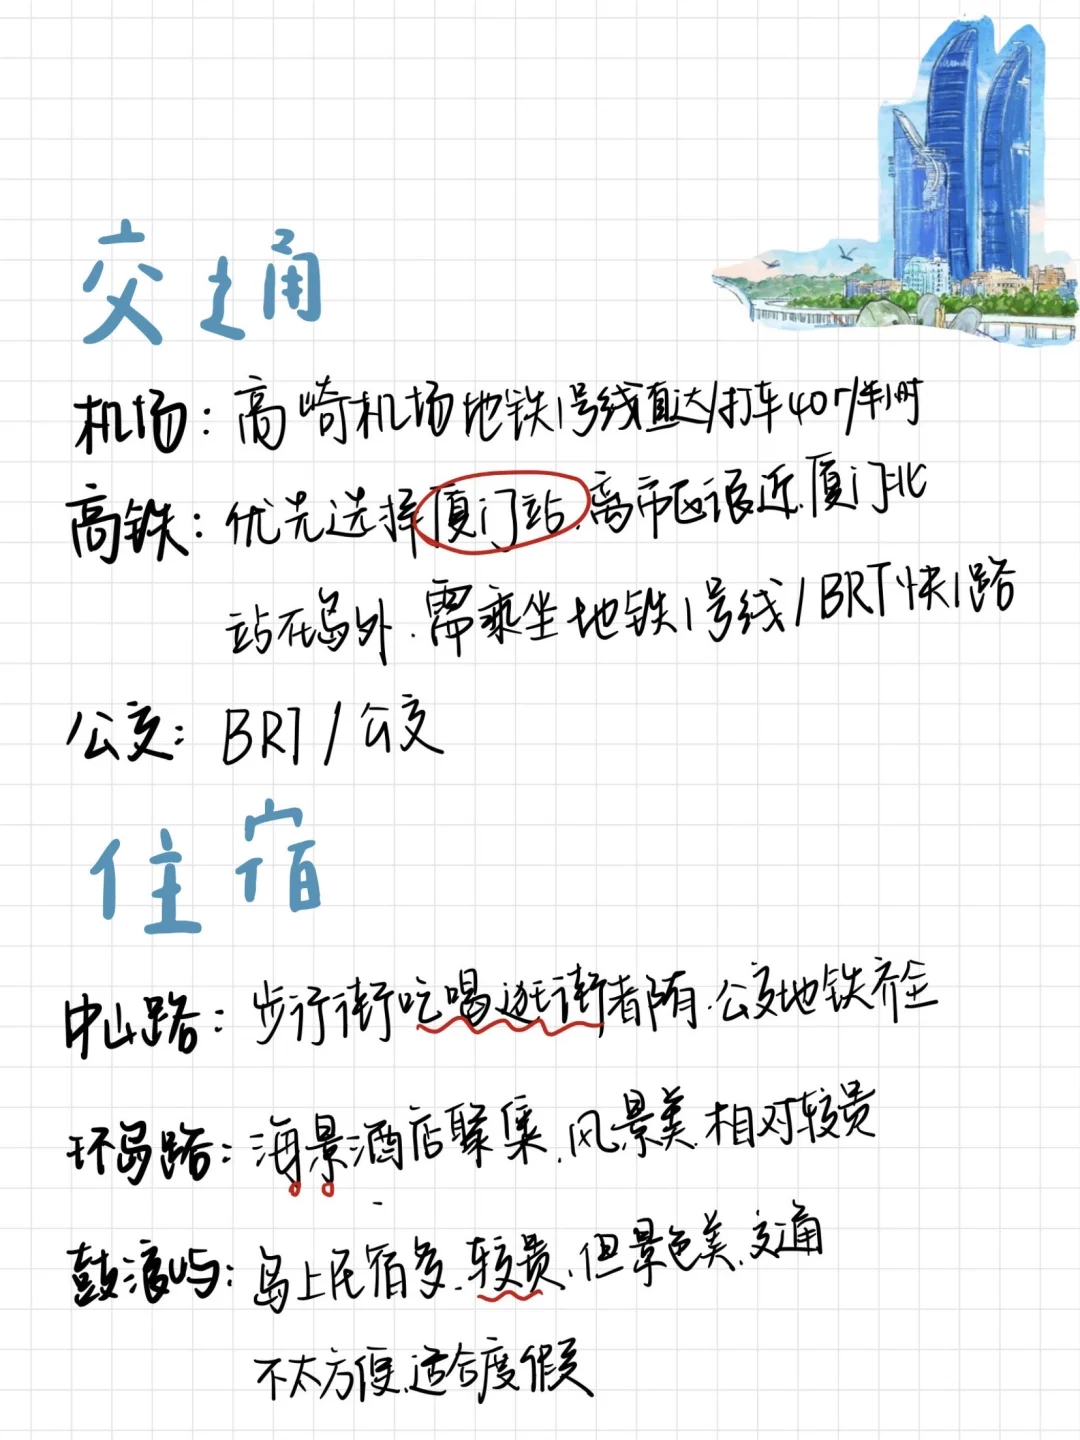 交通
机场：高崎机场地铁1号线直达/打车40r/半小时
高铁：优先选择厦门站，离市区很近，厦门北
站在岛外，需乘坐地铁1号线/BRT快1路
公交：BRT/公交
住宿
中山路：步行街吃喝逛街都有，公交地铁齐全
环岛路：海景酒店聚集，风景美，相对较贵
鼓浪屿：岛上民宿多，较贵，但景色美，交通
不太方便，适合度假